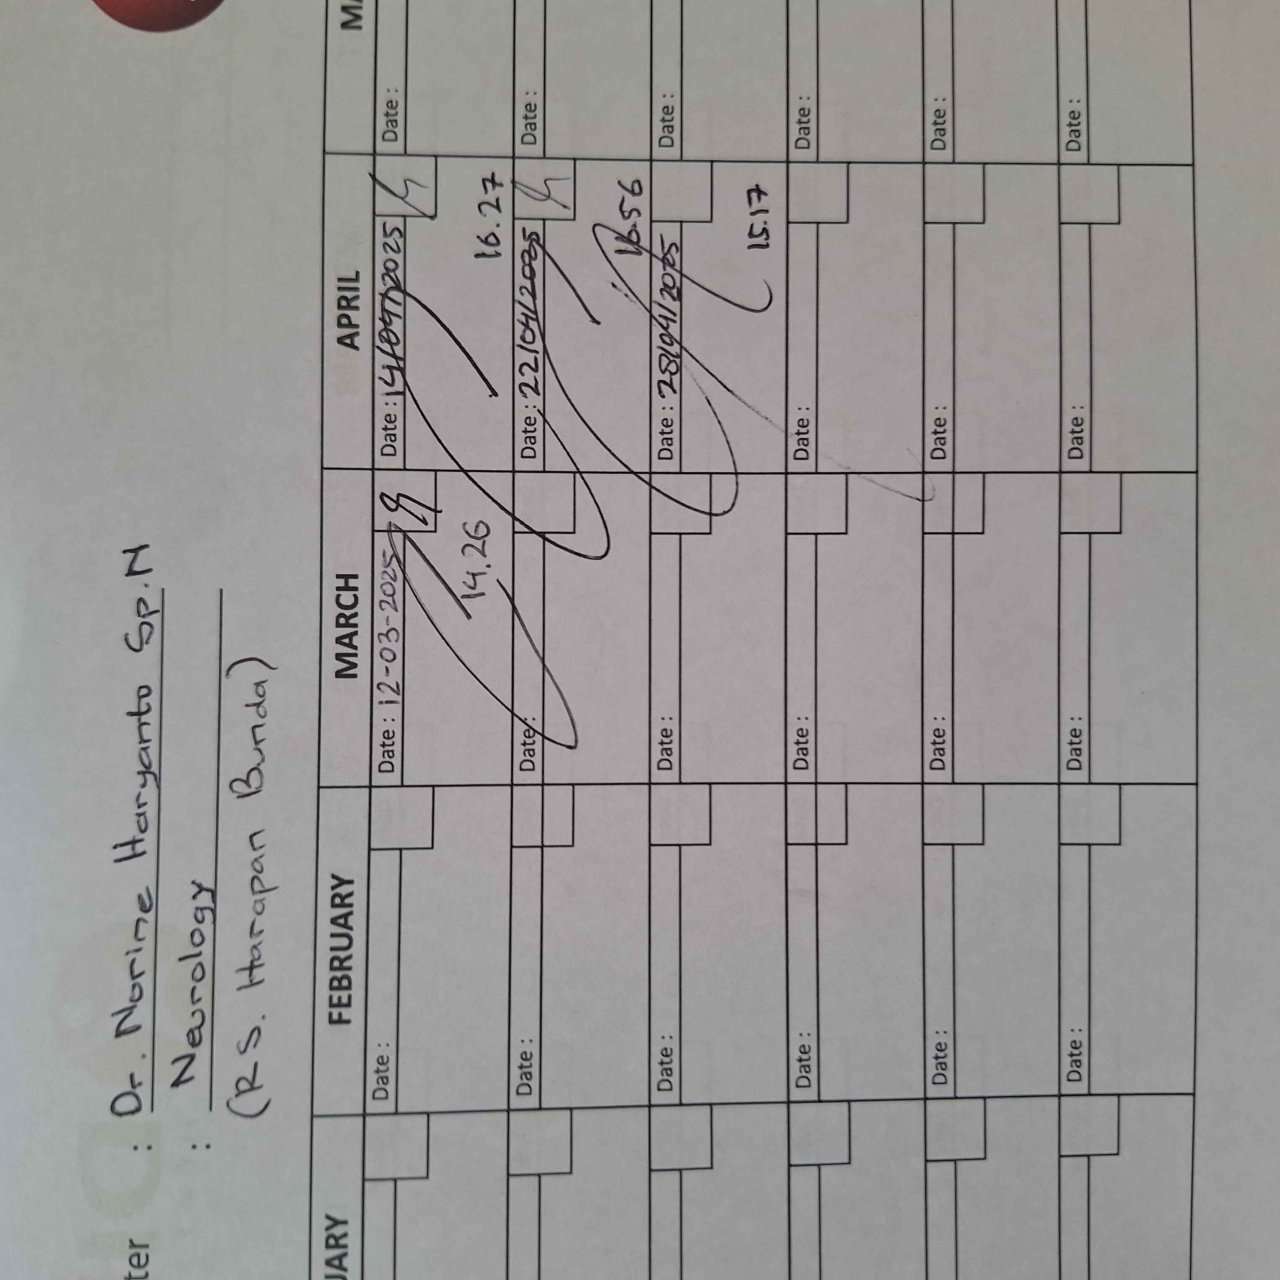 ter : Dr. Norine Haryanto Sp.N
: Neurology
(RS. Harapan Bunda)
UARY FEBRUARY MARCH APRIL MA
Date : Date : 12-03-2025 Date : 14/04/2025 Date :
14.26 16.27
Date : Date : Date : 22/04/2025 Date :
16.56
Date : Date : Date : 28/04/2025 Date :
15.17
Date : Date : Date : Date :
Date : Date : Date : Date :
Date : Date : Date : Date :